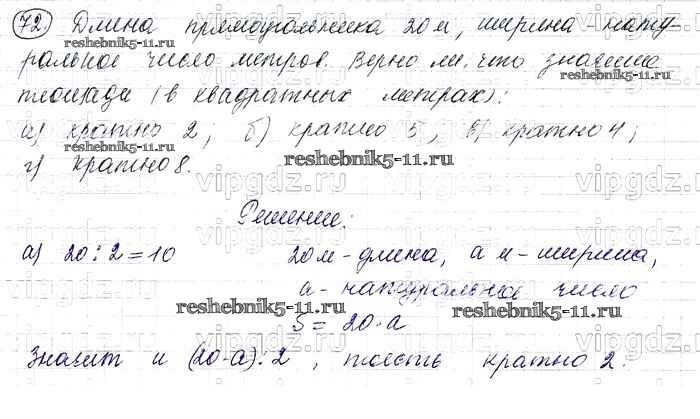 72) Длина прямоугольника 20 м, ширина нату-
ральное число метров. Верно ли, что значение
площади (в квадратных метрах):
а) кратно 2; б) кратно 5; в) кратно 4;
г) кратно 8.
Решение:
а) 20:2=10 20 м - длина, а м - ширина,
а - натуральное число
S = 20·а
Значит и (20·а):2, тоесть кратно 2.
reshebnik5-11.ru
reshebnik5-11.ru
reshebnik5-11.ru
reshebnik5-11.ru
reshebnik5-11.ru
reshebnik5-11.ru
vipgdz.ru
vipgdz.ru
vipgdz.ru
vipgdz.ru